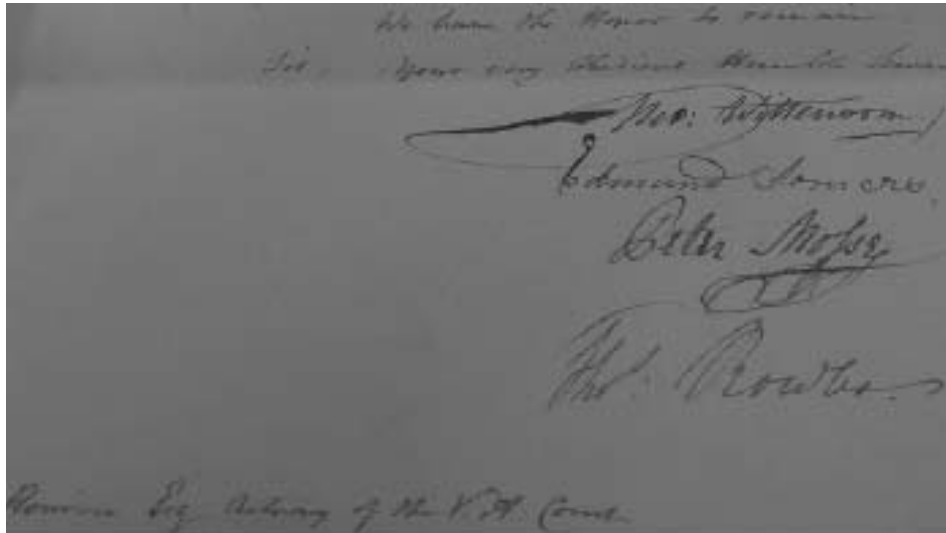 We have the Honor to remain
Sir, Your very Obedient Humble
Wittenoom
Edmund Somers
Peter Mossey
Thos. Rowles
Esq. Attorney of the V. A. Court